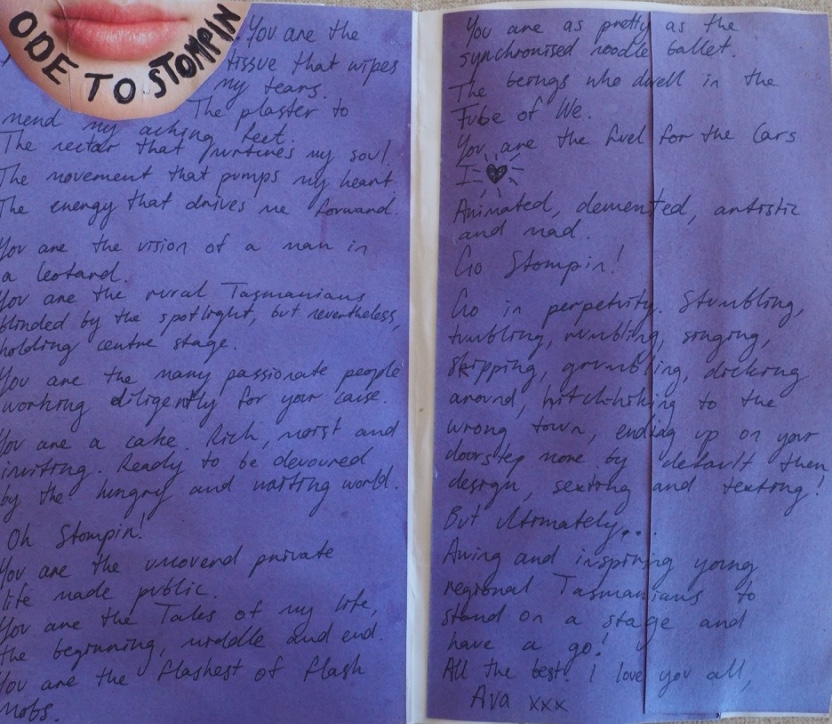 ODE TO STOMPIN
You are the
tissue that wipes
my tears.
The plaster to
mend my aching feet.
The nectar that nurtures my soul.
The movement that pumps my heart.
The energy that drives me forward.
You are the vision of a man in
a leotard.
You are the rural Tasmanians
blinded by the spotlight, but nevertheless,
holding centre stage.
You are the many passionate people
working diligently for your cause.
You are a cake. Rich, moist and
inviting. Ready to be devoured
by the hungry and waiting world.
Oh Stompin!
You are the uncoverd private
life made public.
You are the Tales of my life,
the beginning, middle and end.
You are the flashest of flash
mobs.
You are as pretty as the
synchronised noodle ballet.
The beings who dwell in the
Fube of We.
You are the fuel for the Cars
I ♥
Animated, demented, artistic
and mad.
Go Stompin!
Go in perpetuity. Stumbling,
tumbling, rumbling, singing,
skipping, grumbling, dicking
around, hitch-hiking to the
wrong town, ending up on your
doorstep more by default then
design, sexting and texting!
But Ultimately...
Awing and inspiring young
regional Tasmanians to
stand on a stage and
have a go!
All the best! I love you all,
Ava xxx